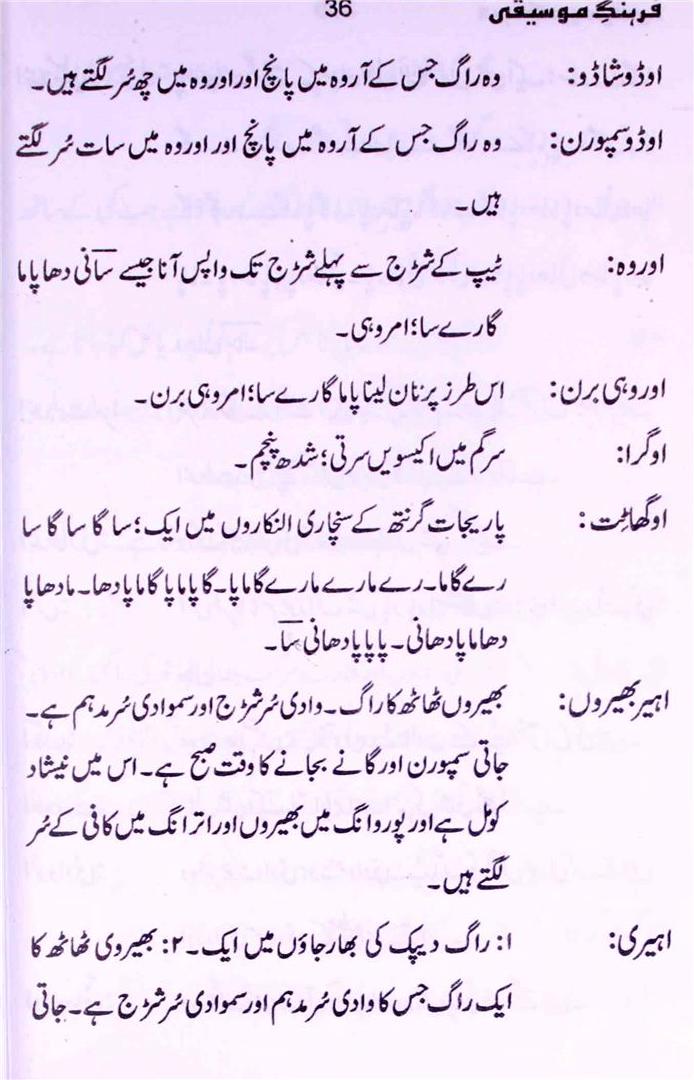 فرہنگِ موسیقی 36
اوڈوشاڈو: وہ راگ جس کے آروہ میں پانچ اور اوروہ میں چھ سُر لگتے ہیں۔
اوڈوسمپورن: وہ راگ جس کے آروہ میں پانچ اور اوروہ میں سات سُر لگتے
ہیں۔
اوروہ: ٹیپ کے شڑج سے پہلے شڑج تک واپس آنا جیسے سٓا نی دھا پا ما
گا رے سا؛ امروہی۔
اوروہی برن: اس طرز پر تان لینا پا ما گا رے سا؛ امروہی برن۔
اوگرا: سرگم میں اکیسویں سرتی؛ شدھ پنچم۔
اوگھاٹِت: پاریجات گرنتھ کے سنچاری النکاروں میں ایک؛ سا گا سا گا سا
رے گا ما۔ رے ما رے ما رے گا ما پا۔ گا پا ما پا گا ما پا دھا۔ ما دھا پا
دھا ما پا دھا نی۔ پا پا پا دھا نی سٓا۔
اہیر بھیروں: بھیروں ٹھاٹھ کا راگ۔ وادی سُر شڑج اور سموادی سُر مدہم ہے۔
جاتی سمپورن اور گانے بجانے کا وقت صبح ہے۔ اس میں نیشاد
کومل ہے اور پوروانگ میں بھیروں اور اترانگ میں کافی کے سُر
لگتے ہیں۔
اہیری: ۱: راگ دیپک کی بھارجاؤں میں ایک۔ ۲: بھیروی ٹھاٹھ کا
ایک راگ جس کا وادی سُر مدہم اور سموادی سُر شڑج ہے۔ جاتی